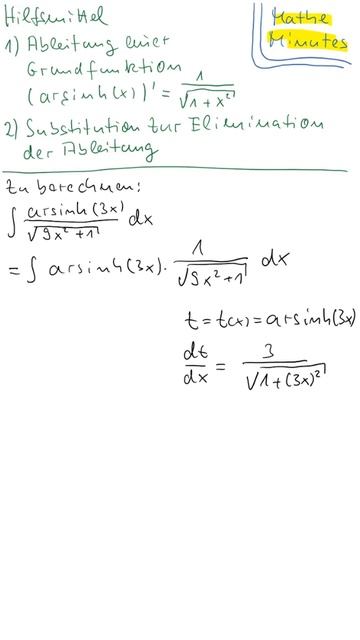 Hilfsmittel
Mathe
Minutes
1) Ableitung einer
Grundfunktion
(arsinh(x))' = 1/√(1+x²)
2) Substitution zur Elimination
der Ableitung
zu berechnen:
∫ arsinh(3x)/√(9x²+1) dx
= ∫ arsinh(3x) · 1/√(9x²+1) dx
t = t(x) = arsinh(3x)
dt/dx = 3/√(1+(3x)²)